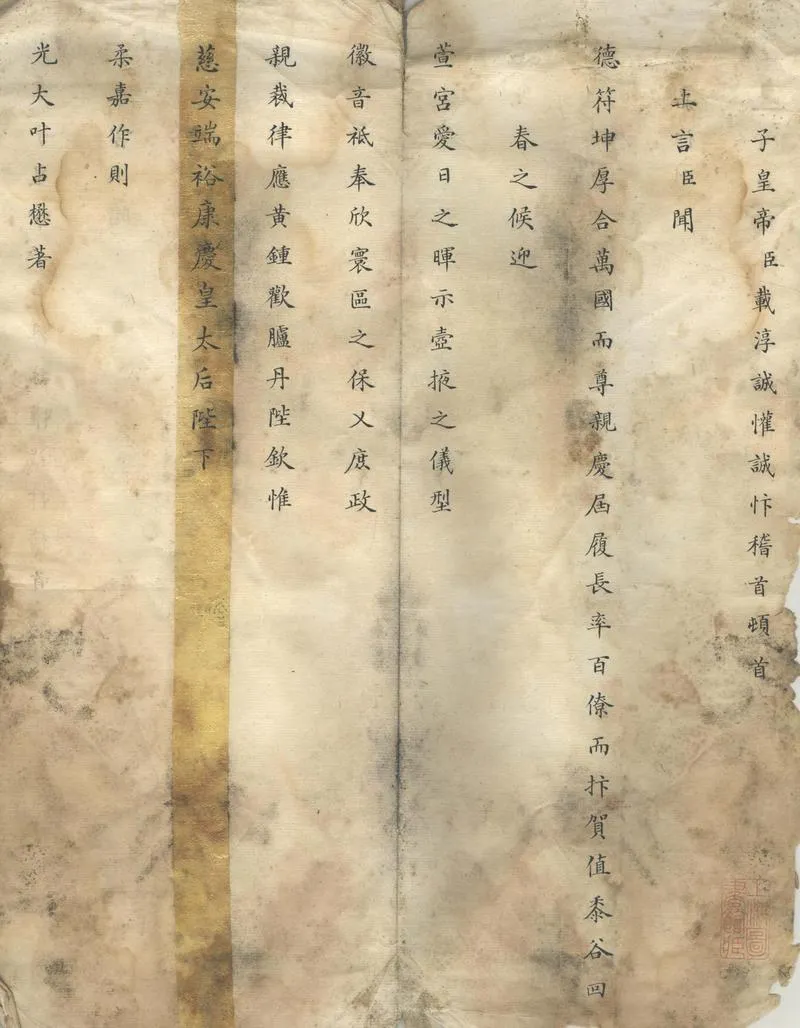 子皇帝臣載淳誠懽誠忭稽首頓首
上言臣聞
德符坤厚合萬國而尊親慶屆履長率百僚而抃賀值黍谷回
春之候迎
萱宮愛日之暉示壼掖之儀型
徽音祗奉欣寰區之保乂庶政
親裁律應黃鍾歡臚丹陛欽惟
慈安端裕康慶皇太后陛下
柔嘉作則
光大叶占懋著